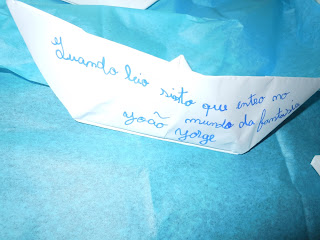 Quando leio sinto que entro no
mundo da fantasia
João Jorge